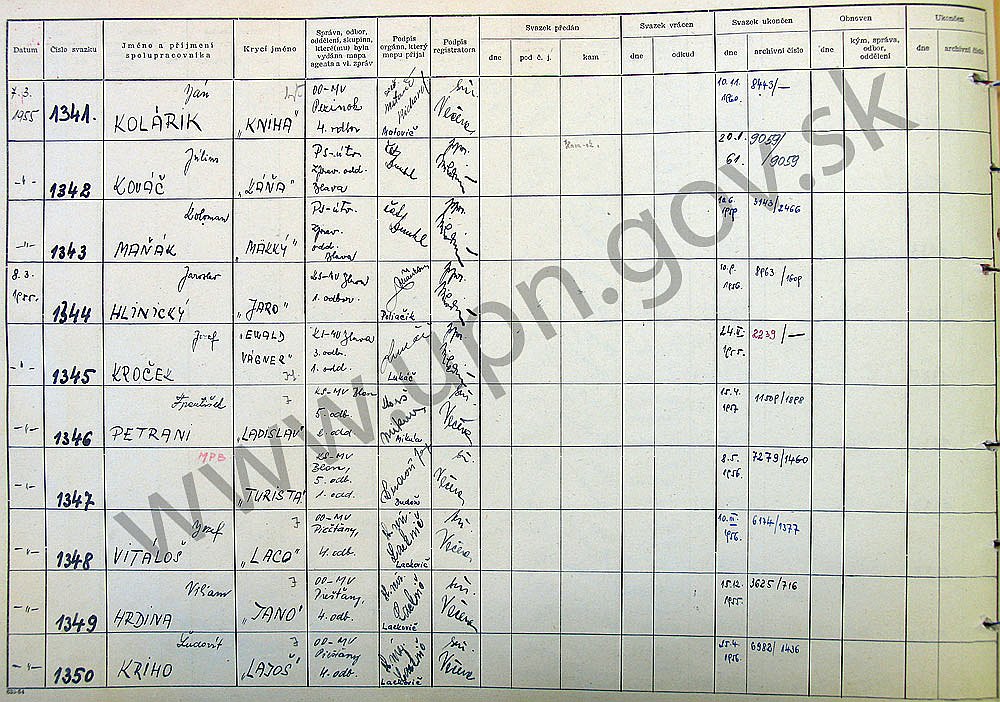 Datum
Číslo svazku
Jméno a příjmení
spolupracovníka
Krycí jméno
Správa, odbor,
oddělení, skupina,
které(mu) byla
vydána mapa
agenta a vl. zpráv
Podpis
orgánu, který
mapu přijal
Podpis
registratora
Svazek předán
dne
pod č. j.
kam
Svazek vrácen
dne
odkud
Svazek ukončen
dne
archivní číslo
Obnoven
dne
kým, správa,
odbor,
oddělení
Ukončen
dne
archivní číslo
7.3.
1955
1341.
Ján
KOLÁRIK
„KNIHA"
OO-MV
Pezinok
4. odbor
Večera
10.11.
1960.
8443/—
1342
Július
KOVÁČ
„KÁŇA"
PS-útv.
zprav. odd.
Blava
20.1.
61.
9059/
/9059
1343
Koloman
MAŇÁK
„MAKKÝ"
PS-útv.
zprav.
odd.
Blava
3143/2466
8.3.
1955.
1344
Jaroslav
HLINICKÝ
„JARO"
KS-MV Blava
1. odbor.
Poliačik
10.9.
1956.
8963/1609
1345
Jozef
KROČEK
„EWALD
VÁGNER"
KS-MV Blava
3. odb.
1. odd.
Lukáč
24.III.
1955.
2239/—
1346
František
PETRANI
„LADISLAV"
KS-MV Blava
5. odb.
2. odd.
Mikula
Večera
15.4.
1957
11509/1898
MPB
1347
„TURISTA"
KS-MV
Blava,
5. odb.
1. odd.
Večera
8.5.
1956.
7279/1460
1348
Jozef
VITALOŠ
„LACO"
OO-MV
Piešťany,
4. odb.
Lackovič
Večera
10.III.
1956.
6174/1377
1349
Viliam
HRDINA
„JANO"
OO-MV
Piešťany,
4. odb.
Lackovič
Večera
15.12.
1955.
3625/716
1350
Ľudovít
KRIHO
„LAJOŠ"
OO-MV
Piešťany
4. odb.
Lackovič
Večera
25.4.
1956.
6982/1436
www.upn.gov.sk